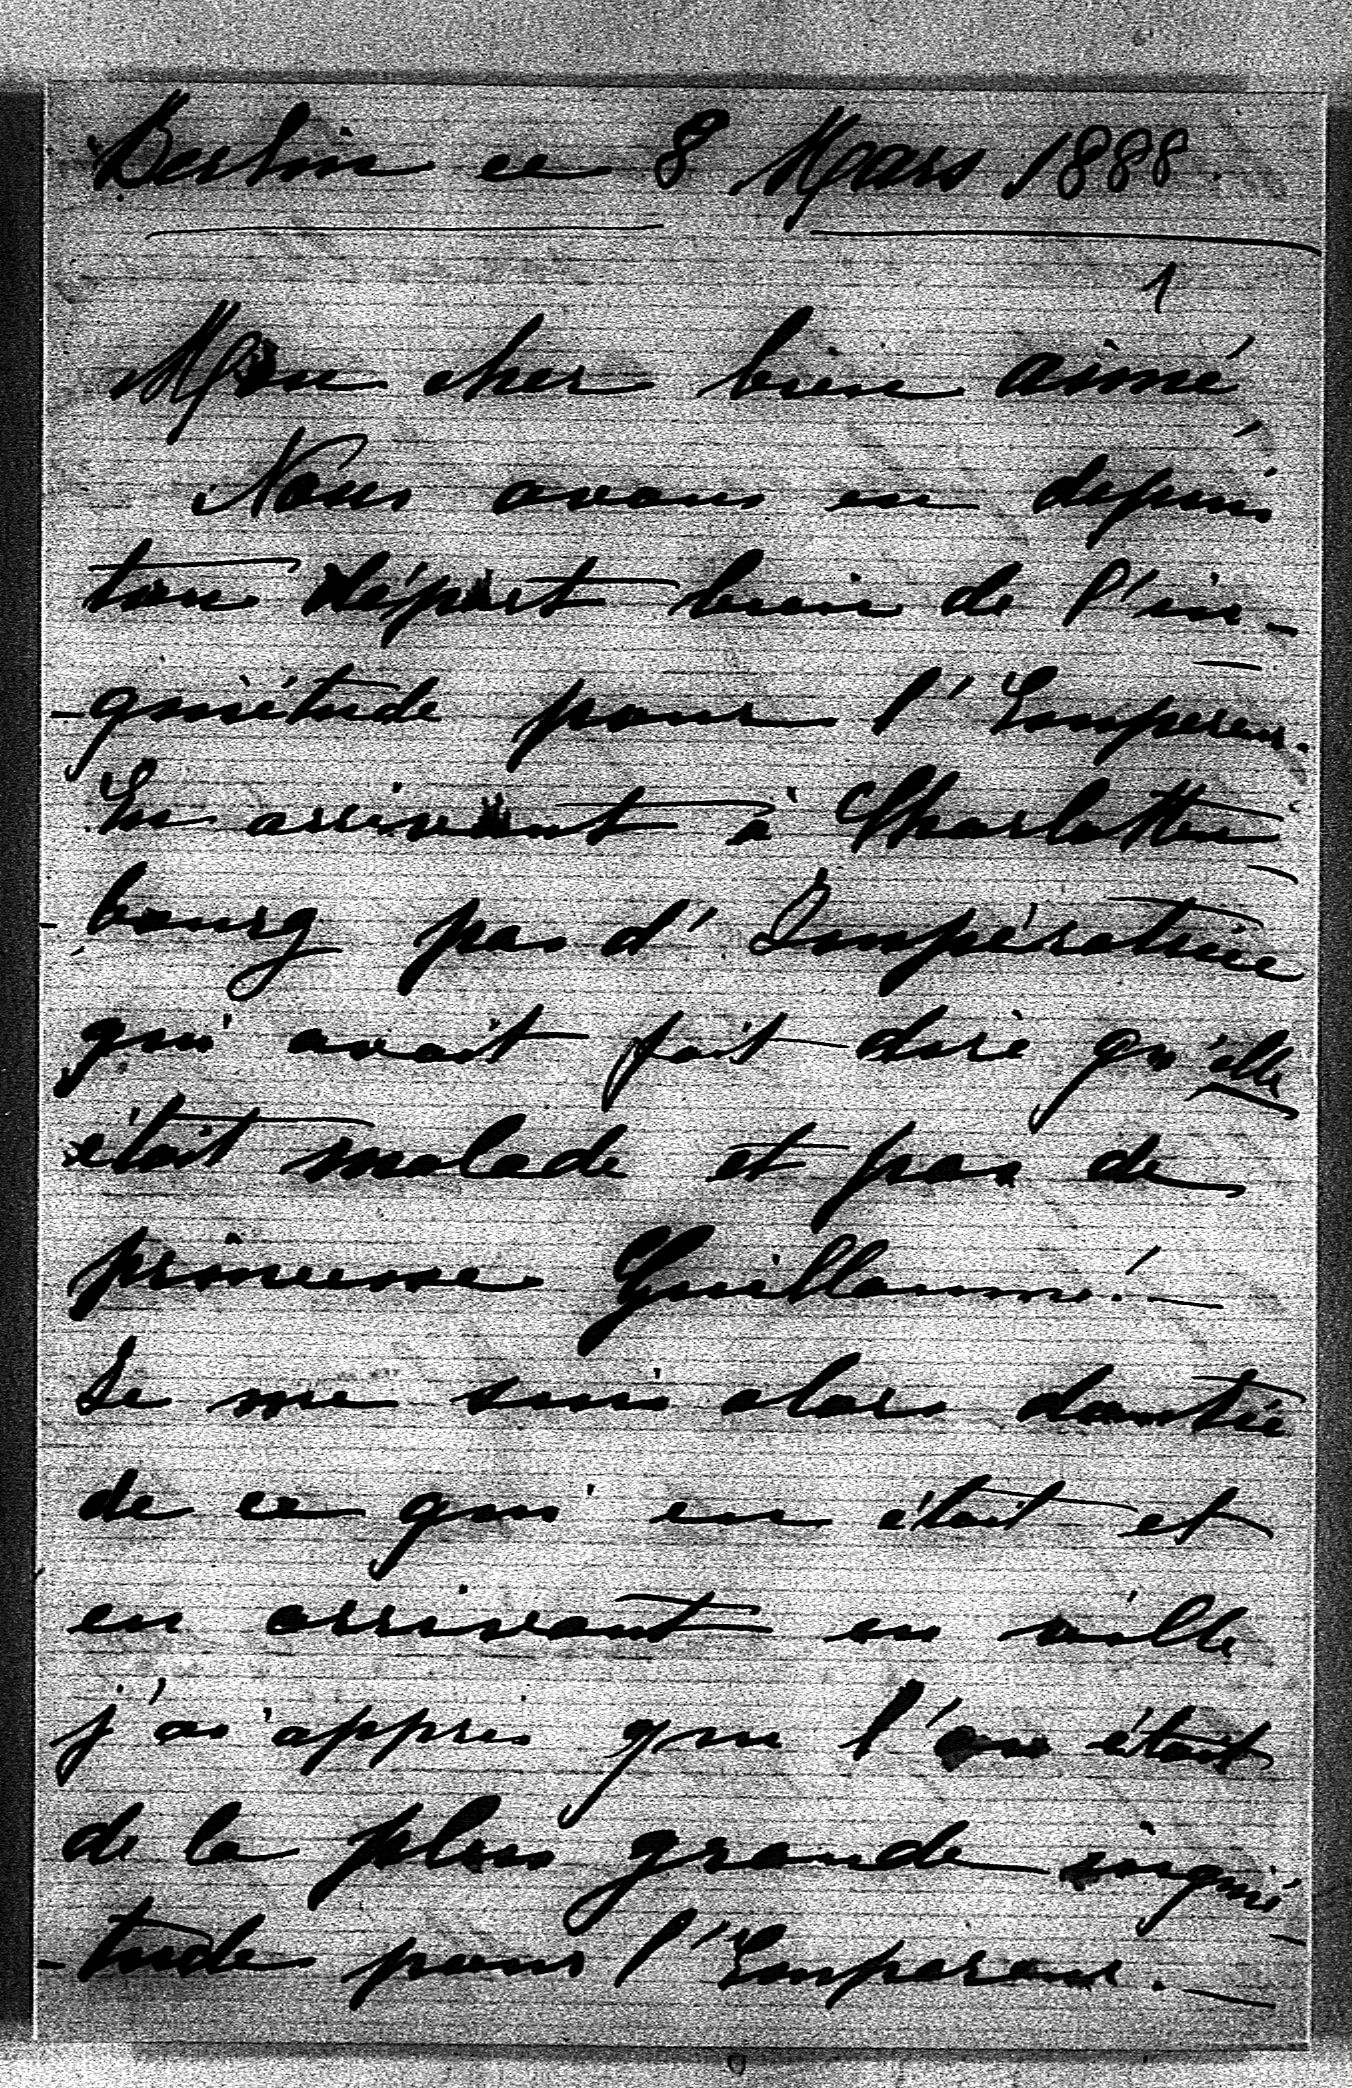 Berlin ce 8 Mars 1888.
1
Mon cher bien aimé,
Nous avons eu depuis
ton départ bien de l'in-
-quiétude pour l'Empereur.
En arrivant à Charlotten
-bourg pas d'Impératrice
qui avait fait dire qu'elle
était malade et pas de
princesse Guillaume!
Je me suis alors doutée
de ce qui en était et
en arrivant en ville
j'ai appris que l'on était
de la plus grande inquié
-tude pour l'Empereur. -